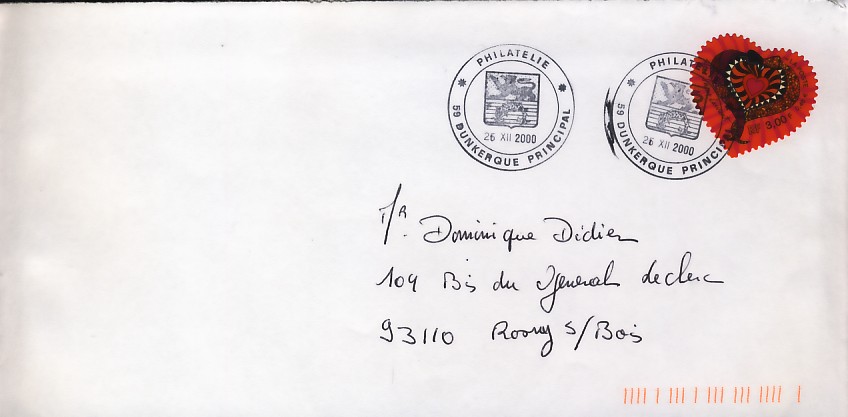 PHILATELIE
59 DUNKERQUE PRINCIPAL
26 XII 2000
PHILATELIE
59 DUNKERQUE PRINCIPAL
26 XII 2000
3,00
Mr. Dominique Didier
109 Bis du General Leclerc
93110 Rosny s/Bois